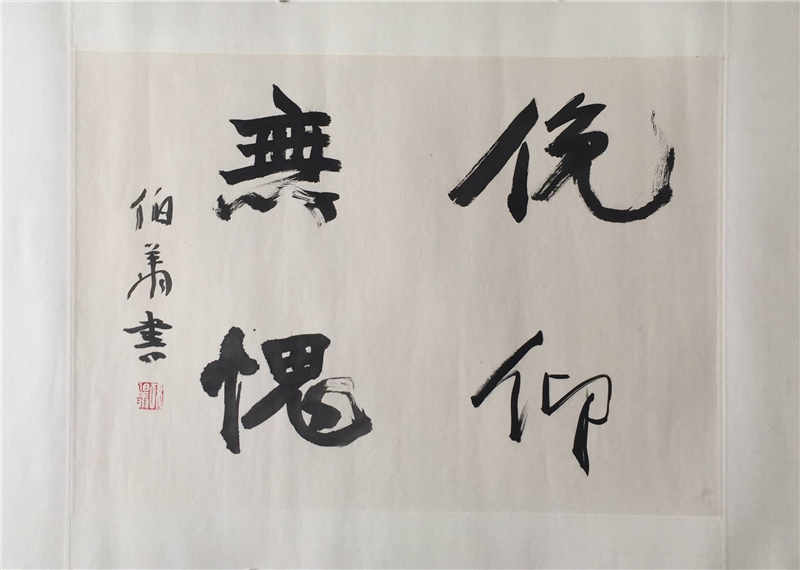 俛仰
無愧
伯翔書